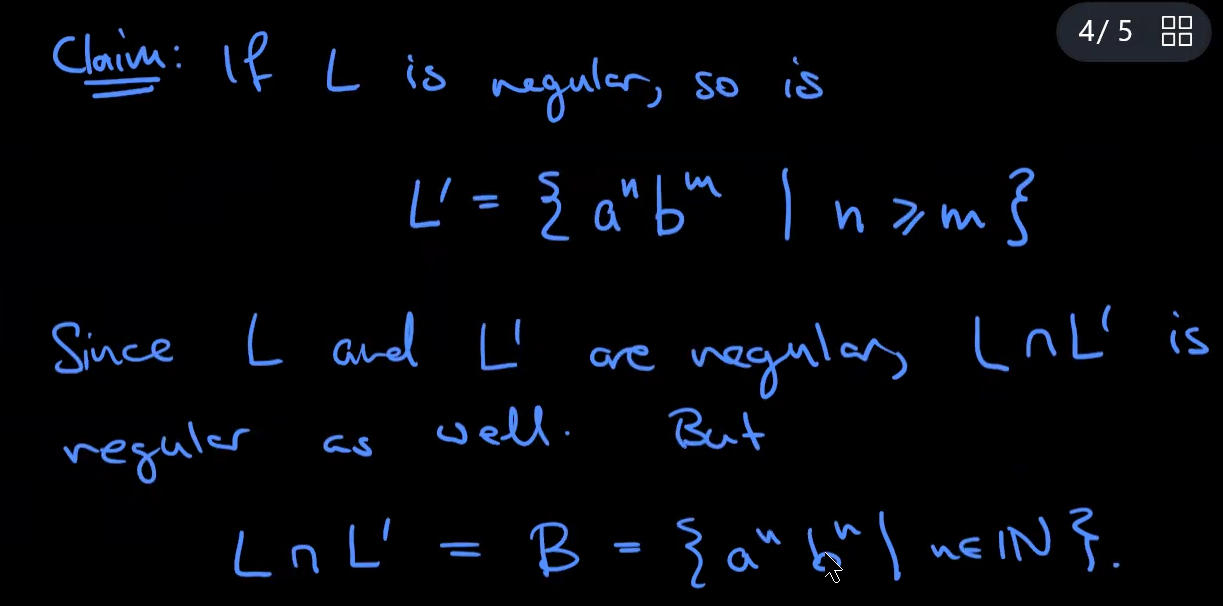 4/ 5
Claim: If L is regular, so is
L' = { aⁿ bᵐ | n ⩾ m }
Since L and L' are regular, L ∩ L' is
regular as well. But
L ∩ L' = B = { aⁿ bⁿ | n ∈ ℕ }.